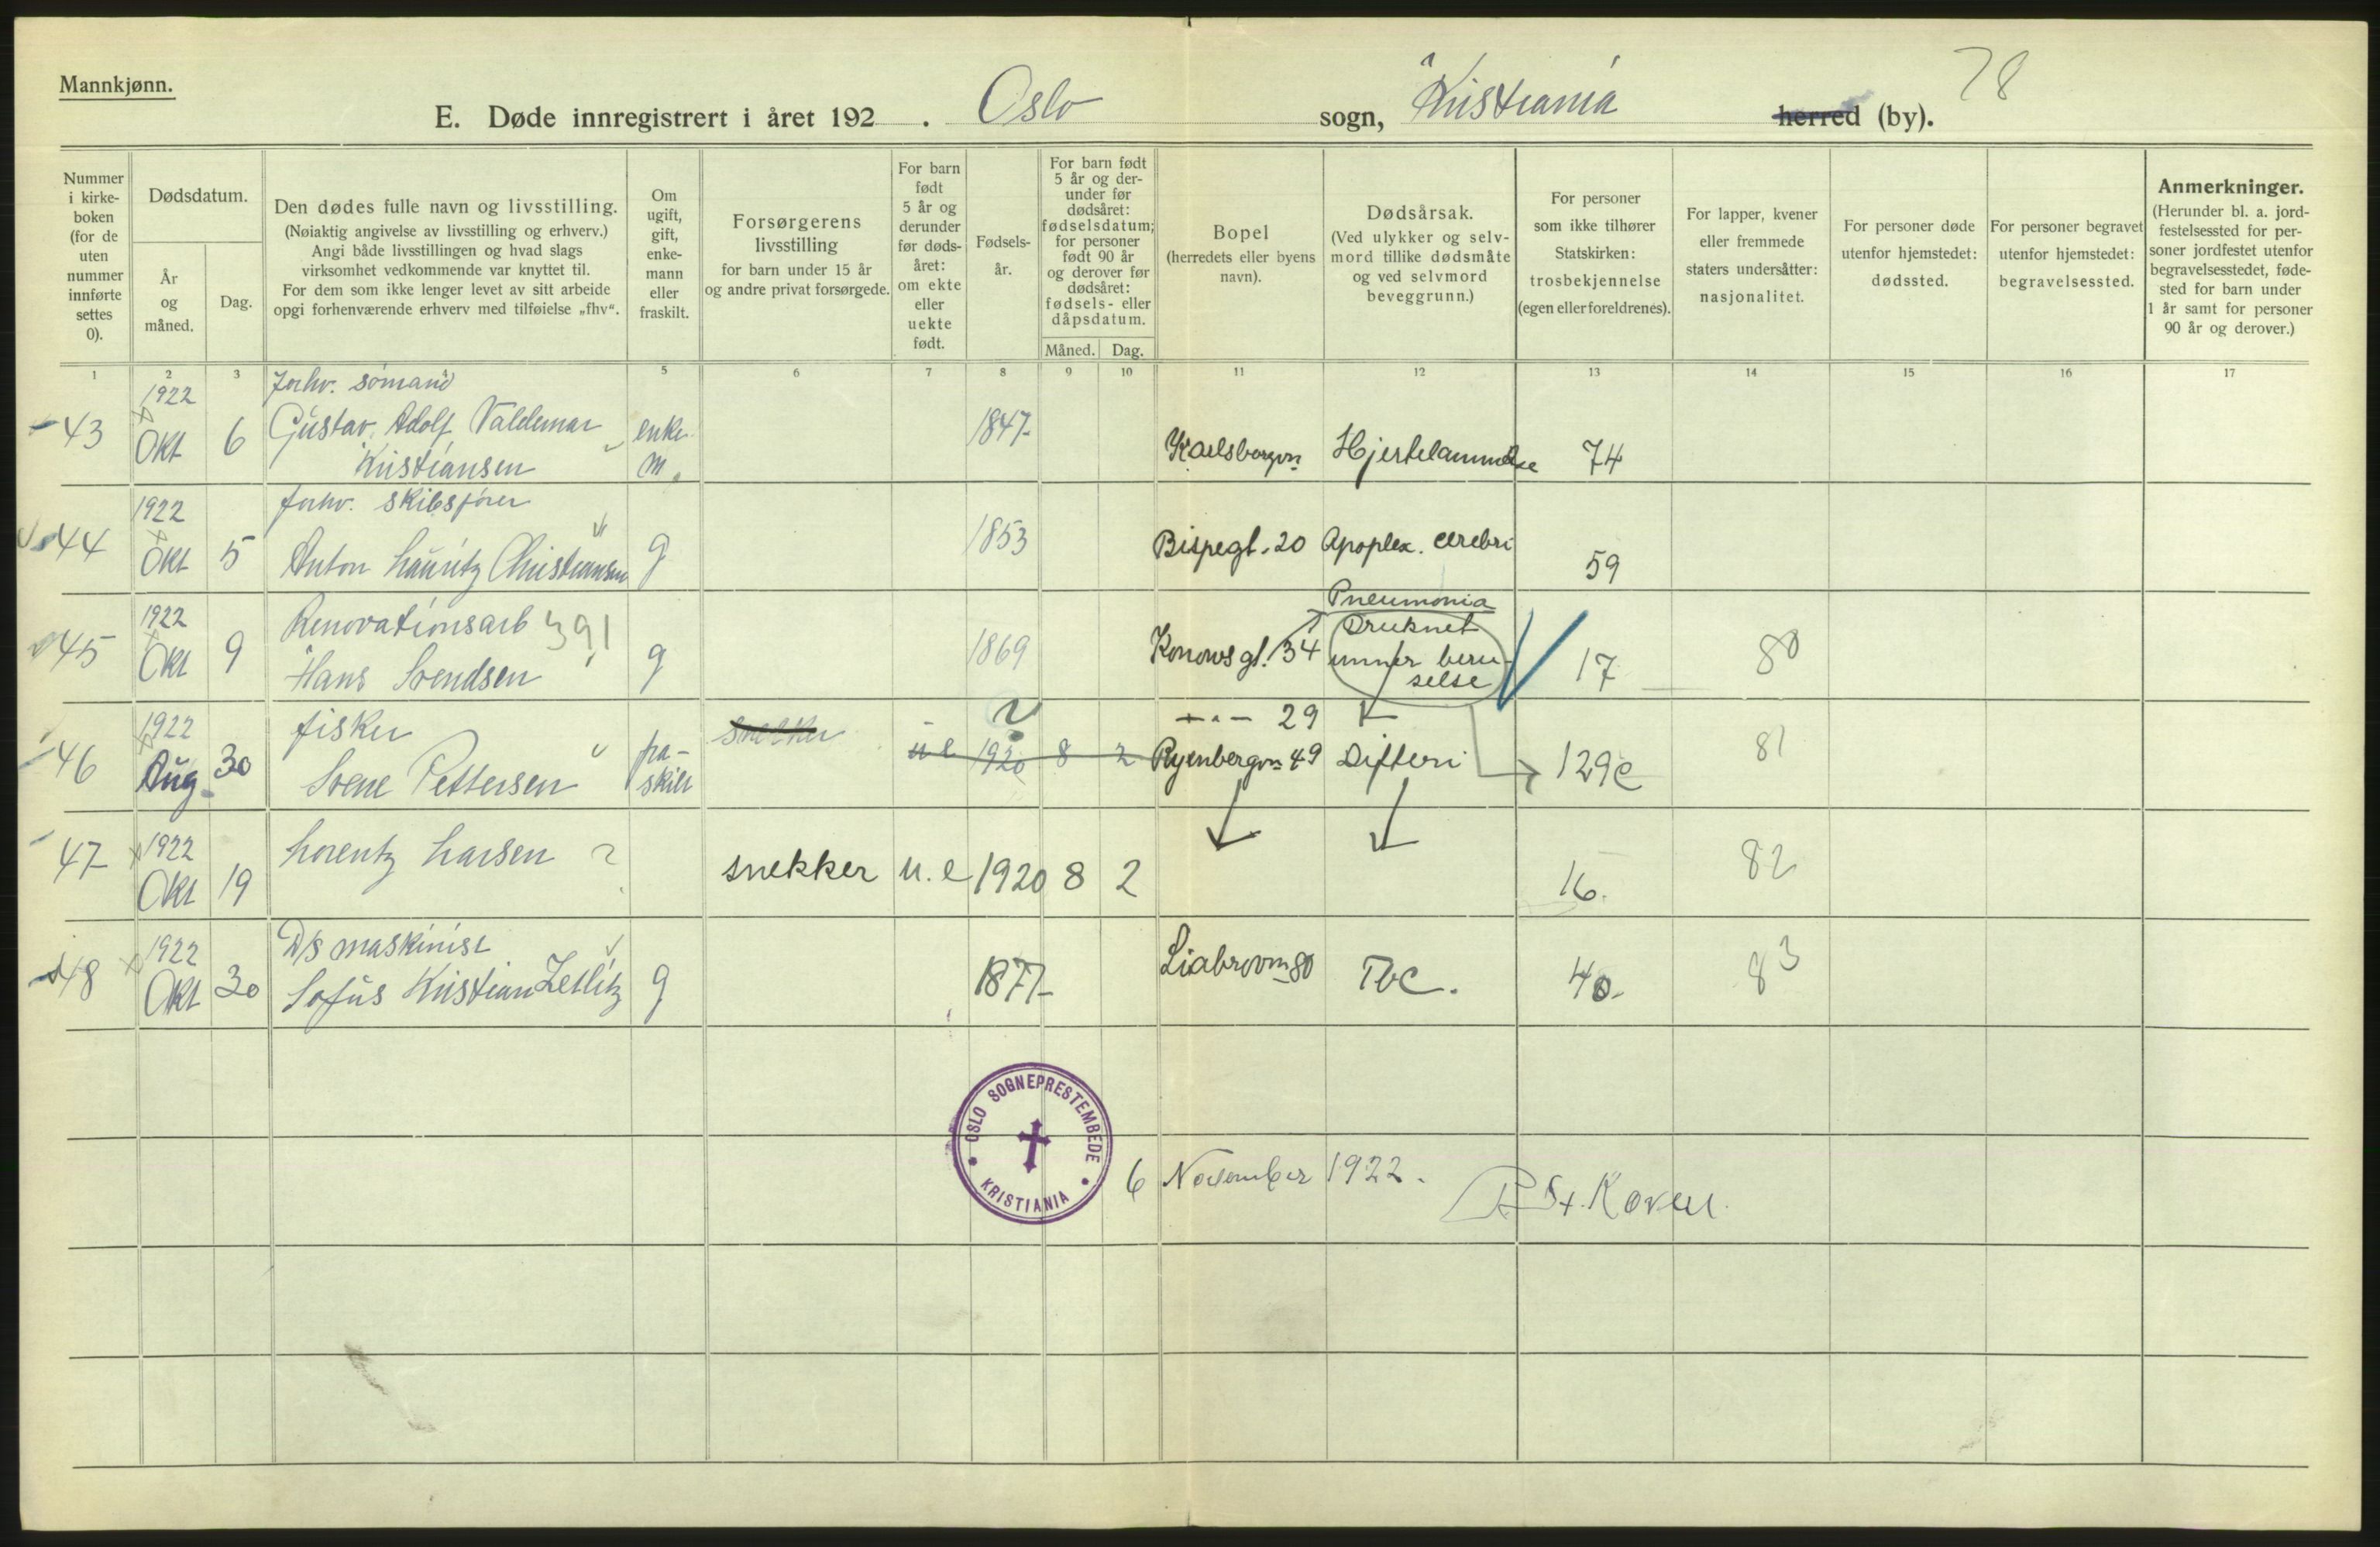 Mannkjønn.
78
E. Døde innregistrert i året 192 . Oslo sogn, Kristiania herred (by).
Nummer i kirke-boken (for de uten nummer innførte settes 0).
Dødsdatum.
År og måned.
Dag.
Den dødes fulle navn og livsstilling.
(Nøiaktig angivelse av livsstilling og erhverv.)
Angi både livsstillingen og hvad slags
virksomhet vedkommende var knyttet til.
For dem som ikke lenger levet av sitt arbeide
opgi forhenværende erhverv med tilføielse „fhv“.
Om ugift, gift, enke-mann eller fraskilt.
Forsørgerens livsstilling
for barn under 15 år
og andre privat forsørgede.
For barn født 5 år og derunder før døds-året: om ekte eller uekte født.
Fødsels-år.
For barn født 5 år og der-under før dødsåret: fødselsdatum; for personer født 90 år og derover før dødsåret: fødsels- eller dåpsdatum.
Måned. Dag.
Bopel
(herredets eller byens navn).
Dødsårsak.
(Ved ulykker og selv-mord tillike dødsmåte og ved selvmord beveggrunn.)
For personer som ikke tilhører Statskirken: trosbekjennelse (egen eller foreldrenes).
For lapper, kvener eller fremmede staters undersåtter: nasjonalitet.
For personer døde utenfor hjemstedet: dødssted.
For personer begravet utenfor hjemstedet: begravelsessted.
Anmerkninger.
(Herunder bl. a. jord-festelsessted for per-soner jordfestet utenfor begravelsesstedet, føde-sted for barn under 1 år samt for personer 90 år og derover.)
1 2 3 5 6 7 8 9 10 11 12 13 14 15 16 17
1922 forhv. sømand
43 Okt 6 Gustav Adolf Valdemar enke 1847
Kristiansen m. Hjertelammelse 74
1922 forhv. skibsfører
44 Okt 5 Anton Lauritz Christiansen g 1853 Bispegt. 20 Apoplex. cerebri 59
Pneumonia
1922 Renovationsarb 391 Druknet
45 Okt 9 Hans Svendsen g 1869 Konowsgt. 34 unner beru- 17 80
selse
1922 fisker snekker ? -"- 29
46 Aug 30 Svene Pettersen fra- u e 1920 8 2 Ryenbergvn 49 Difteri 129e 81
skilt
1922 Lorentz Larsen ? 82
47 Okt 19 snekker u. e 1920 8 2 16.
1922 D/S maskinist
48 Okt 30 Sofus Kristian Zetlitz g 1877 Liabrovn 80 Tbc. 40. 83
OSLO SOGNEPRESTEMBEDE
KRISTIANIA
6 November 1922.